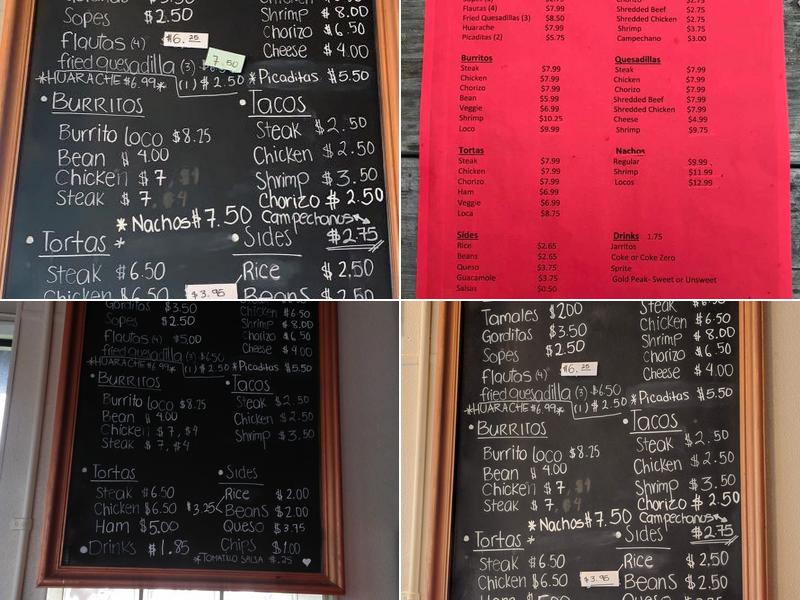 Sopes $2.50
Flautas (4) $6.25
7.50
fried quesadilla (3)
*HUARACHE $6.99* (1) $2.50
• BURRITOS
Burrito loco $8.25
Bean $4.00
Chicken $7,
Steak $7, $4
*Nachos $7.50
• Tortas *
Steak #6.50
Chicken $6.50
$3.95
Shrimp $8.00
Chorizo $6.50
Cheese $4.00
*Picaditas $5.50
• TACOS
Steak $2.50
Chicken $2.50
Shrimp $3.50
Chorizo $2.50
Campechanos
$2.75
• Sides
Rice $2.50
Beans 2.50
Flautas (4) $7.99
Fried Quesadillas (3) $8.50
Huarache $7.99
Picaditas (2) $5.75
Burritos
Steak $7.99
Chicken $7.99
Chorizo $7.99
Bean $5.99
Veggie $6.99
Shrimp $10.25
Loco $9.99
Tortas
Steak $7.99
Chicken $7.99
Chorizo $7.99
Ham $6.99
Veggie $6.99
Loca $8.75
Sides
Rice $2.65
Beans $2.65
Queso $3.75
Guacamole $3.75
Salsas $0.50
Chorizo $2.75
Shredded Beef $2.75
Shredded Chicken $2.75
Shrimp $3.75
Campechano $3.00
Quesadillas
Steak $7.99
Chicken $7.99
Chorizo $7.99
Shredded Beef $7.99
Shredded Chicken $7.99
Cheese $4.99
Shrimp $9.75
Nachos
Regular $9.99
Shrimp $11.99
Locos $12.99
Drinks 1.75
Jarritos
Coke or Coke Zero
Sprite
Gold Peak- Sweet or Unsweet
Gorditas $3.50
Sopes $2.50
Flautas (4) $5.00
fried quesadilla (3) $6.50
*HUARACHE $6.99* (1) $2.50
• BURRITOS
Burrito loco $8.25
Bean $4.00
Chicken $7, $4
Steak $7, $4
• Tortas
Steak $6.50
Chicken $6.50
Ham $5.00
• Drinks $1.85
Steak
Chicken $6.50
Shrimp $8.00
Chorizo $6.50
Cheese $4.00
*Picaditas $5.50
• TACOS
Steak $2.50
Chicken $2.50
Shrimp $3.50
• Sides
$3.25
Rice $2.00
Beans $2.00
Queso $3.75
Chips $1.00
*TOMATILLO SALSA $.25
Tamales $2.00
Gorditas $3.50
Sopes $2.50
Flautas (4) $6.25
fried quesadilla (3) $6.50
*HUARACHE $6.99* (1) $2.50
• BURRITOS
Burrito loco $8.25
Bean $4.00
Chicken $7,
Steak $7, $4
*Nachos $7.50
• Tortas *
Steak $6.50
Chicken $6.50
$3.95
Steak
Chicken $6.50
Shrimp $8.00
Chorizo $6.50
Cheese $4.00
*Picaditas $5.50
• TACOS
Steak $2.50
Chicken $2.50
Shrimp $3.50
Chorizo $2.50
Campechanos
$2.75
• Sides
Rice $2.50
Beans $2.50